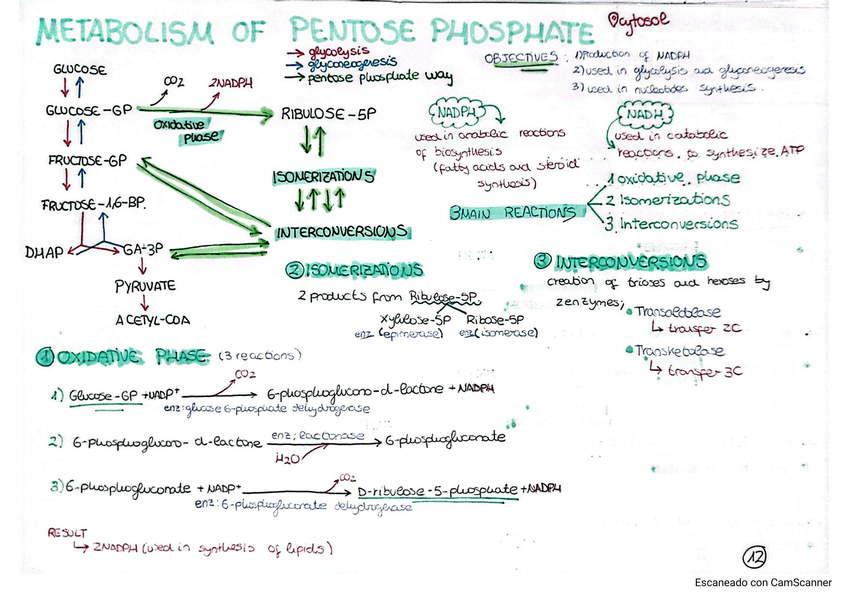 METABOLISM OF PENTOSE PHOSPHATE
Cytosol
→ glycolysis
→ glyconeogenesis
→ pentose phosphate way
OBJECTIVES: 1) Production of NADPH
2) used in glycolysis and glyconeogenesis
3) used in nucleotides synthesis.
GLUCOSE
CO2
2NADPH
GLUCOSE-6P
RIBULOSE-5P
oxidative
phase
FRUCTOSE-6P
ISOMERIZATIONS
FRUCTOSE-1,6-BP.
INTERCONVERSIONS
DHAP
GA-3P
PYRUVATE
ACETYL-COA
NADPH
used in anabolic reactions
of biosynthesis
(fatty acids and steroid
synthesis)
NADH
used in catabolic
reactions. to synthesize ATP
3 MAIN REACTIONS
1 oxidative phase
2 Isomerizations
3 Interconversions
② ISOMERIZATIONS
2 products from Ribulose-5P
xylulose-5P Ribose-5P
enz (epimerase) enz (isomerase)
③ INTERCONVERSIONS
creation of trioses and hexoses by
2 enzymes;
• Transaldolase
↳ transfer 2C
• Transketolase
↳ transfer 3C
① OXIDATIVE PHASE (3 reactions)
CO2
1) Glucose-6P + NADP+ → 6-phosphoglucono-d-lactone + NADPH
enz: glucose 6-phosphate dehydrogenase
2) 6-phosphoglucono-d-lactone enz; lactonase → 6-phosphogluconate
H2O
CO2
3) 6-phosphogluconate + NADP+ → D-ribulose-5-phosphate + NADPH
enz: 6-phosphogluconate dehydrogenase
RESULT
↳ 2NADPH (used in synthesis of lipids)
12
Escaneado con CamScanner